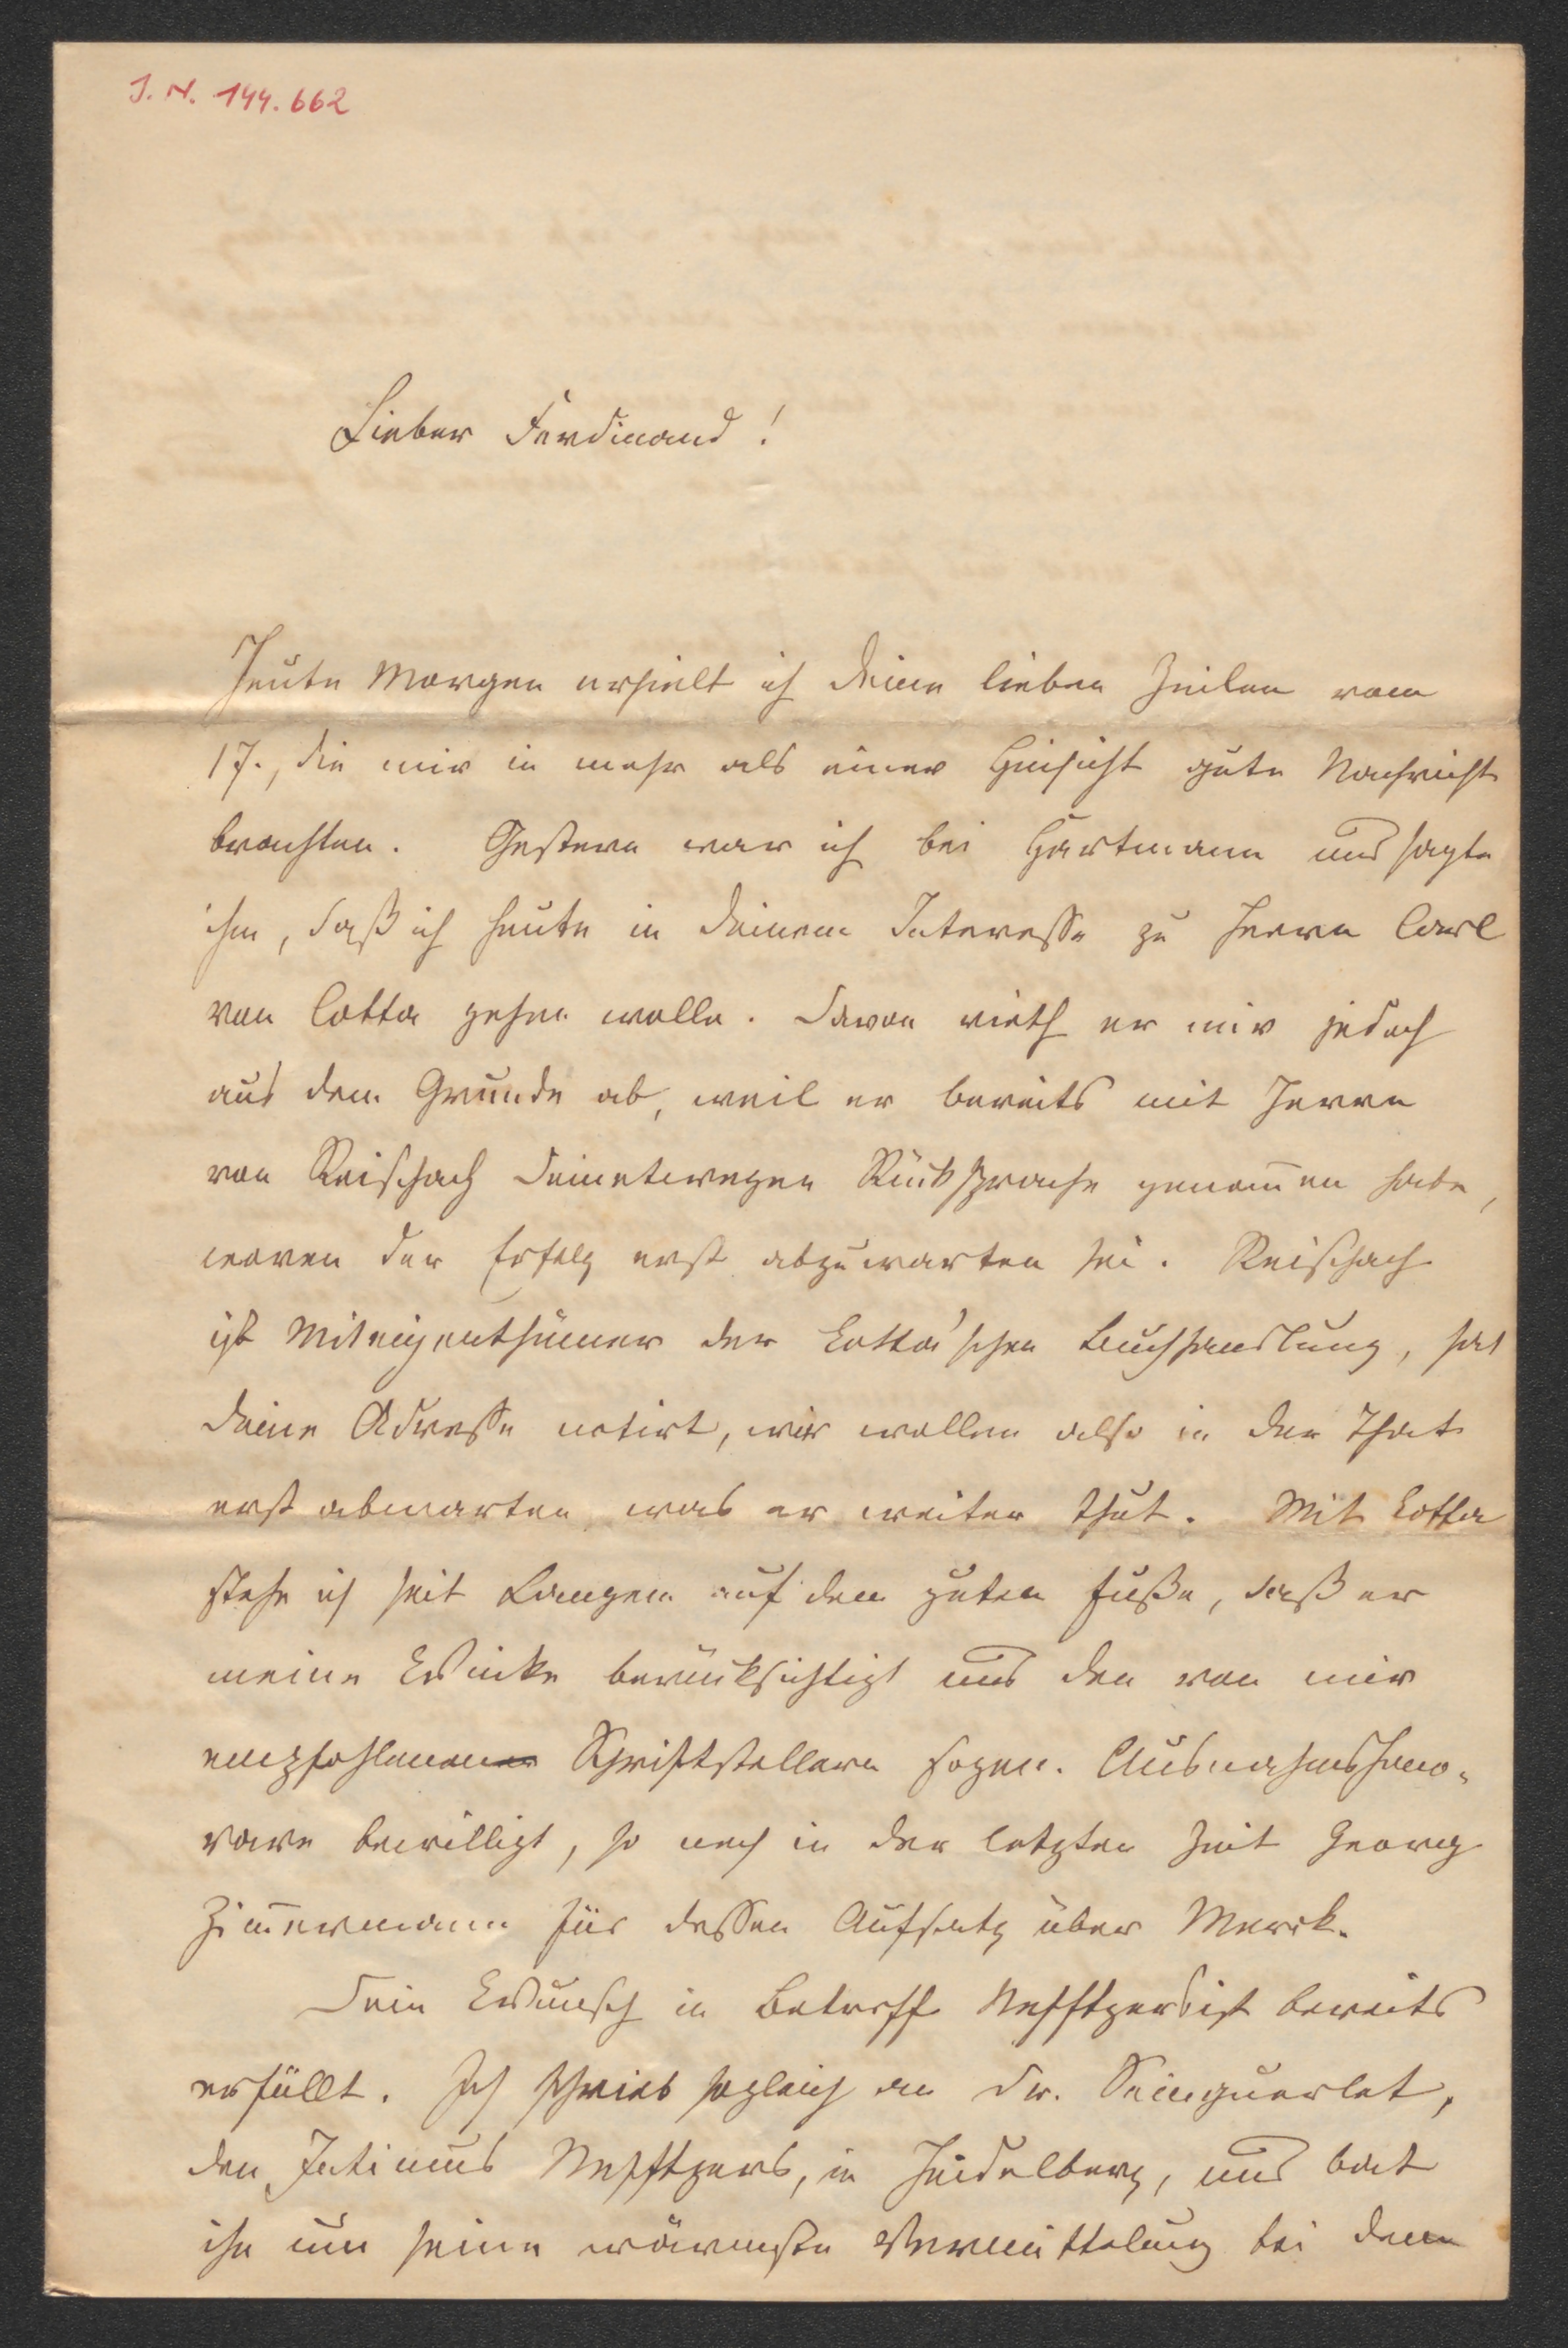 J. N. 144.662
Lieber Ferdinand!
Heute Morgen erhielt ich Deine lieben Zeilen vom
17., die mir in mehr als einer Hinsicht gute Nachricht
brachten. Gestern war ich bei Hartmann und sagte
ihm, daß ich heute in Deinem Interesse zu Herrn Carl
von Cotta gehen wolle. Davon rieth er mir jedoch
aus dem Grunde ab, weil er bereits mit Herrn
von Reischach Deinetwegen Rücksprache genom̅en habe,
wovon der Erfolg erst abzuwarten sei. Reischach
ist Miteigenthümer der Cotta'schen Buchhandlung, hat
Deine Adresse notirt, wir wollen also in der That
erst abwarten was er weiter thut. Mit Cotta
stehe ich seit Langem auf dem guten Fuße, daß er
meine Winke berücksichtigt und den von mir
empfohlenen Schriftstellern sogen. Ausnahmshono-
rare bewilligt, so noch in der letzten Zeit Georg
Zim̅ermann für dessen Aufsatz über Merck.
Dein Wunsch in Betreff Nefftzers ist bereits
erfüllt. Ich schrieb sogleich an Dr. Seinguerlet,
den Intimus Nefftzers, in Heidelberg, und bat
ihn um seine wärmste Vermittelung bei dem